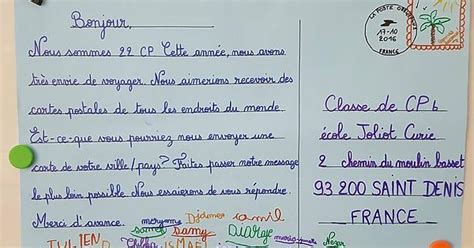 Bonjour,
Nous sommes 22 CP. Cette année, nous avons
très envie de voyager. Nous aimerions recevoir des
cartes postales de tous les endroits du monde.
Est-ce-que vous pourriez nous envoyer une
carte de votre ville/pays? Faites passer notre message
le plus loin possible. Nous essaierons de vous répondre.
Merci d'avance.
meryeme
Djdimer
camil
samy
JULIEN
ISMAEL
LA POSTE
17-10
2016
FRANCE
Classe de CP b
école Joliot Curie
2 chemin du moulin basset
93 200 SAINT DENIS
FRANCE